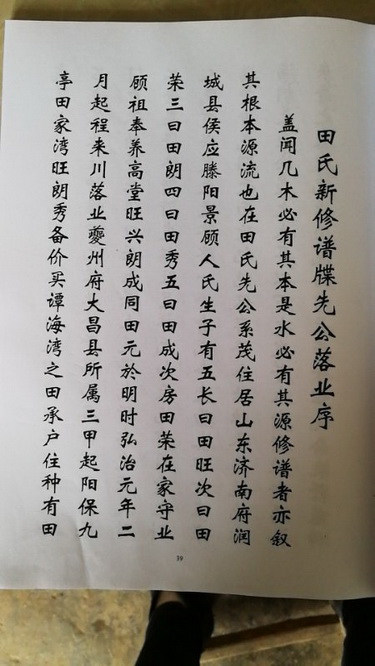 田氏新修谱牒先公落业序
盖闻几木必有其本是水必有其源修谱者亦叙
其根本源流也在田氏先公系茂住居山东济南府润
城县侯应滕阳景顾人氏生子有五长曰田旺次曰田
荣三曰田朗四曰田秀五曰田成次房田荣在家守业
顾祖奉养高堂旺兴朗成同田元於明时弘治元年二
月起程来川落业夔州府大昌县所属三甲起阳保九
亭田家湾旺朗秀备价买谭海湾之田承户住种有田
39